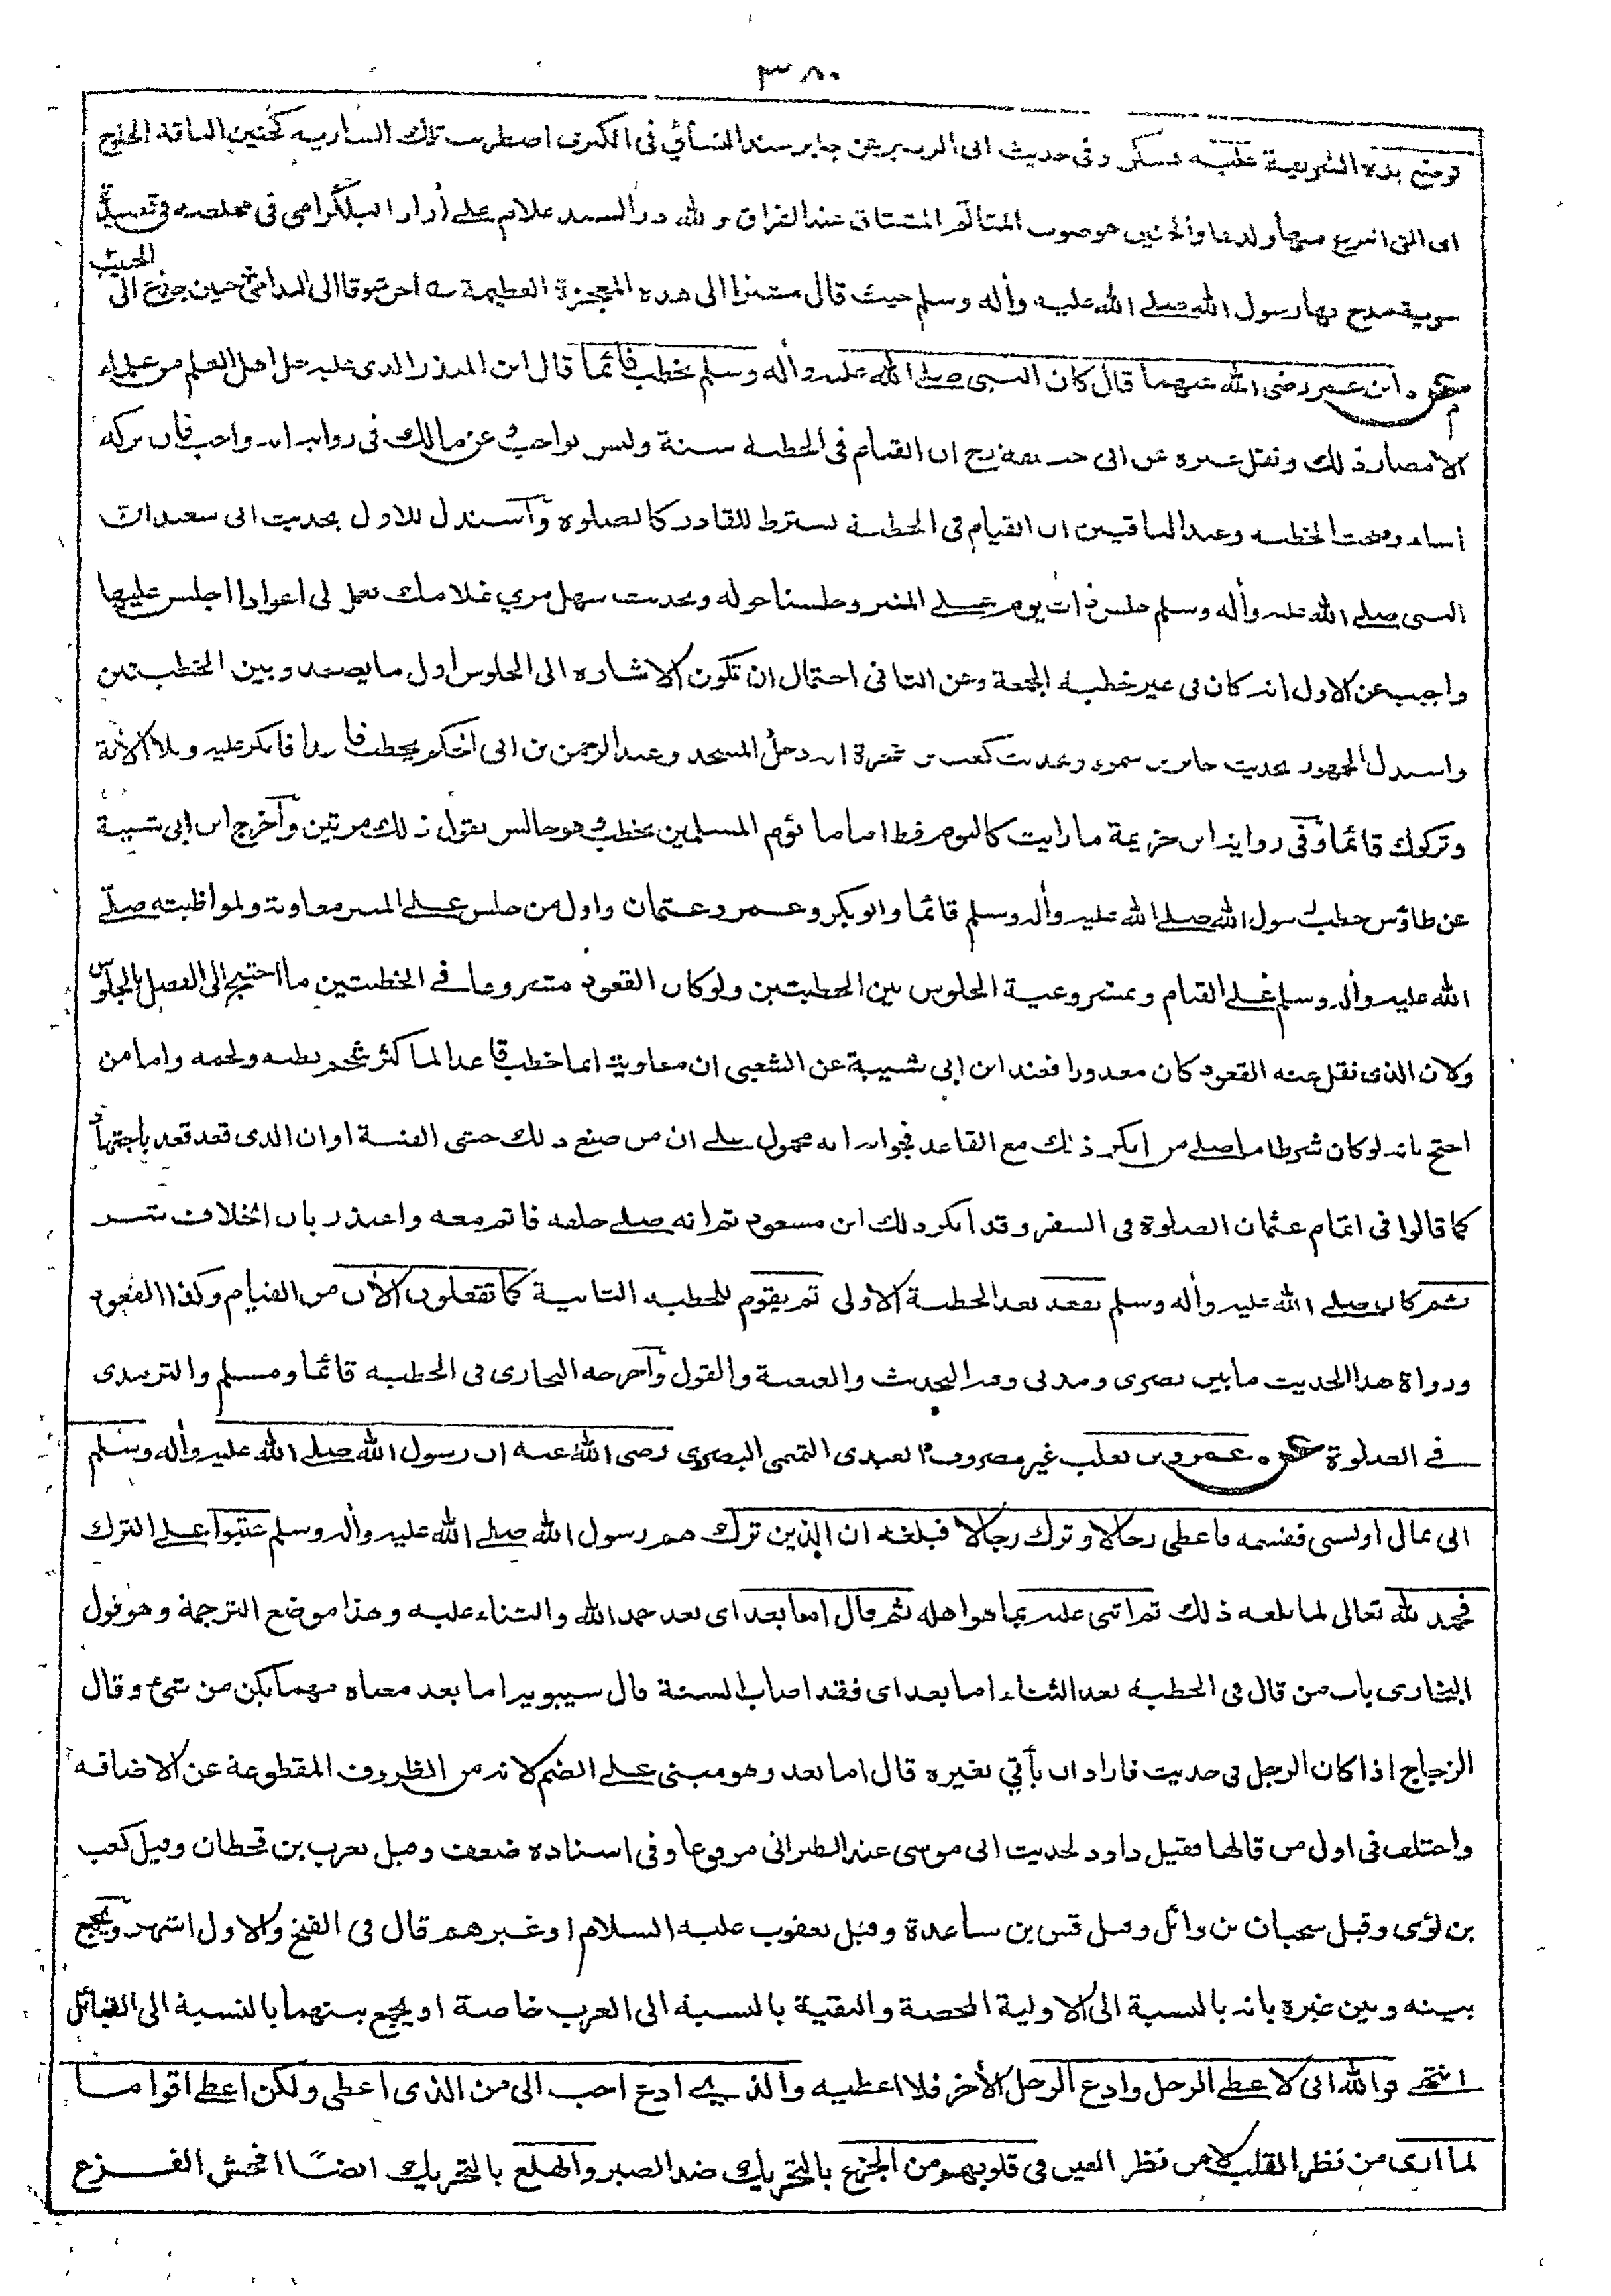 ٣٨٠
فوضع يده الشريفة عليه فسكن وفى حديث ابى الزبير عن جابر عند النسائي فى الكبرى اضطربت تلك السارية كحنين الناقة الخلوج
اى التى انتزع منها ولدها والحنين هو صوت المتألم المشتاق عند الفراق ولله در السيد غلام على أزاد البلگرامى فى مخلصه فى قصيدة
سوية مدح بها رسول الله صلے الله عليه وأله وسلم حيث قال مشيرا الى هذه المعجزة العظيمة احن شوقا الى حين جزع الى الحبيب
عن ابن عمر رضى الله عنهما قال كان النبى صلے الله عليه وأله وسلم يخطب قائما قال ابن المنذر الذى عليه جل اهل العلم من علماء
الامصار ذلك ونقل غيره عن ابى حنيفة رح ان القيام فى الخطبة سنة وليس بواجب وعن مالك فى رواية انه واجب فان تركه
اساء وصحت الخطبة وعند الباقين ان القيام فى الخطبة يشترط للقادر كالصلوة وآستدل للاول بحديث ابى سعيد ان
النبى صلے الله عليه وأله وسلم جلس ذات يوم على المنبر وجلسنا حوله وبحديث سهل مري غلامك يعمل لى اعوادا اجلس عليها
واجيب عن الاول انه كان فى غير خطبة الجمعة وعن الثانى احتمال ان تكون الاشارة الى الجلوس اول ما يصعد وبين الخطبتين
واستدل الجمهور بحديث جابر بن سمرة وبحديث كعب بن عجرة انه دخل المسجد وعبد الرحمن بن ابى الحكم يخطب قاعدا فانكر عليه وتلا الأية
وتركوك قائما وفى رواية ابن خزيمة ما رايت كاليوم قط اماما يؤم المسلمين يخطب وهو جالس يقول ذلك مرتين وآخرج ابن ابى شيبة
عن طاؤس خطب رسول الله صلے الله عليه وأله وسلم قائما وابو بكر وعمر وعثمان واول من جلس على المنبر معاوية ولمواظبته صلے
الله عليه وأله وسلم على القيام وبمشروعية الجلوس بين الخطبتين ولو كان القعود مشروعا فى الخطبتين ما احتيج الى الفصل بالجلوس
ولان الذى نقل عنه القعود كان معذورا فعند ابن ابى شيبة عن الشعبى ان معاوية انما خطب قاعدا لما كثر شحم بطنه ولحمه واما من
احتج بانه لو كان شرطا ما صلے من انكر ذلك مع القاعد فجوابه انه محمول على ان من صنع ذلك خشى الفتنة او ان الذى قعد قعد باجتهاد
كما قالوا فى اتمام عثمان الصلوة فى السفر وقد انكر ذلك ابن مسعود ثم انه صلے خلفه فاتم معه واعتذر بان الخلاف شر
ثم كان صلے الله عليه وأله وسلم يقعد بعد الخطبة الاولى ثم يقوم للخطبة الثانية كما تفعلون الأن من القيام وكذا القعود
ورواة هذا الحديث ما بين بصرى ومدنى وفيه التحديث والعنعنة والقول وآخرجه البخارى فى الخطبة قائما ومسلم والترمذى
فى الصلوة عن عمرو بن تغلب غير مصروف العبدى التميمى البصرى رضى الله عنه ان رسول الله صلے الله عليه وأله وسلم
اتى بمال او بسبى فقسمه فاعطى رجالا وترك رجالا فبلغه ان الذين ترك هم رسول الله صلے الله عليه وأله وسلم عتبوا على الترك
فحمد لله تعالى لما بلغه ذلك ثم اثنى عليه بما هو اهله ثم قال اما بعد اى بعد حمد الله والثناء عليه وهذا موضع الترجمة وهو قول
البخارى باب من قال فى الخطبة بعد الثناء اما بعد اى فقد اصاب السنة قال سيبويه اما بعد معناه مهما يكن من شئ وقال
الزجاج اذا كان الرجل فى حديث فاراد ان يأتي بغيره قال اما بعد وهو مبنى على الضم لانه من الظروف المقطوعة عن الاضافة
واختلف فى اول من قالها فقيل داود لحديث ابى موسى عند الطبرانى مرفوعا وفى اسناده ضعف وقيل يعرب بن قحطان وقيل كعب
بن لؤى وقيل سحبان بن وائل وقيل قس بن ساعدة وقيل يعقوب عليه السلام او غيرهم قال فى الفتح والاول اشهر ويجمع
بينه وبين غيره بانه بالنسبة الى الاولية المحضة والبقية بالنسبة الى العرب خاصة او يجمع بينهما بالنسبة الى القبائل
انتهى فوالله انى لاعطى الرجل وادع الرجل الأخر فلا اعطيه والذى ادع احب الى من الذى اعطى ولكن اعطى اقواما
لما ارى من نظر القلب لا من نظر العين فى قلوبهم من الجزع بالتحريك ضد الصبر والهلع بالتحريك ايضًا افحش الفزع